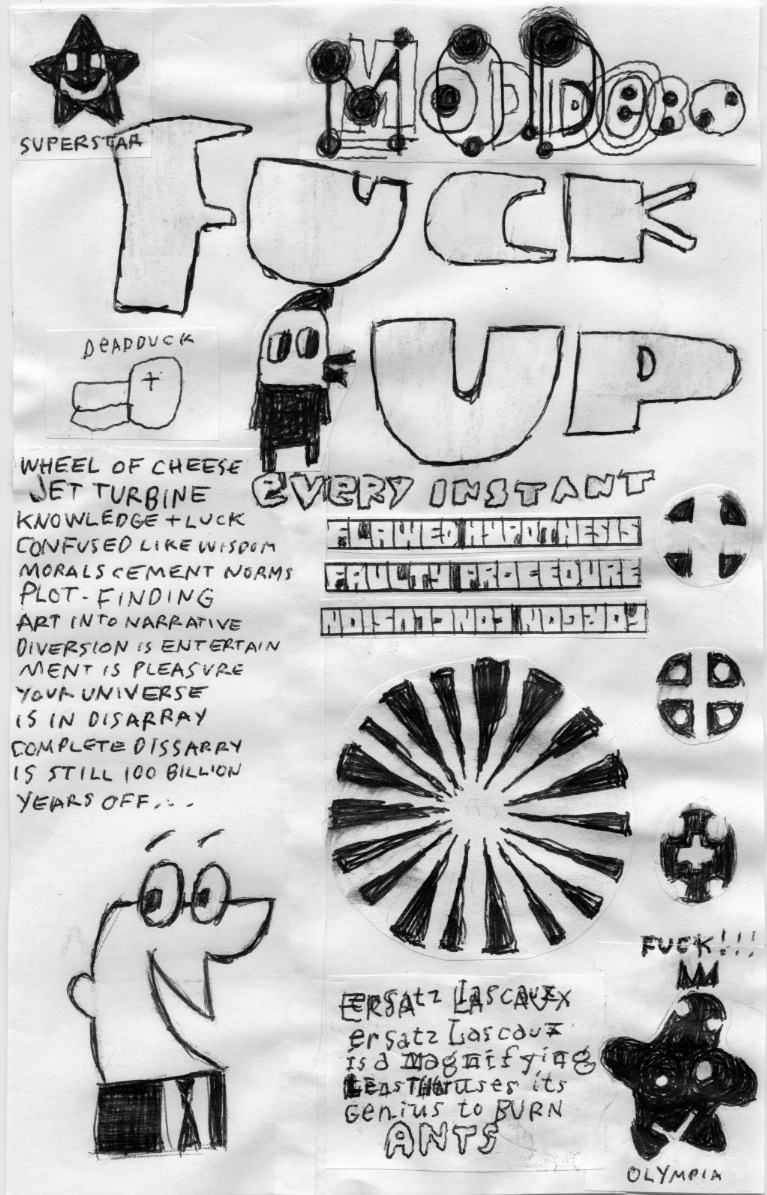 SUPERSTAR
MODDern
FUCK
UP
DEADDUCK
+
WHEEL OF CHEESE
JET TURBINE
KNOWLEDGE + LUCK
CONFUSED LIKE WISDOM
MORALS CEMENT NORMS
PLOT-FINDING
ART INTO NARRATIVE
DIVERSION IS ENTERTAIN
MENT IS PLEASURE
YOUR UNIVERSE
IS IN DISARRAY
COMPLETE DISSARRY
IS STILL 100 BILLION
YEARS OFF...
eVERY INSTANT
FLAWED HYPOTHESIS
FAULTY PROCEDURE
FUCK!!!
ersatz Lascaux
ersatz Lascaux
is a Magnifying
Lens that uses its
Genius to BURN
ANTS
OLYMPIA